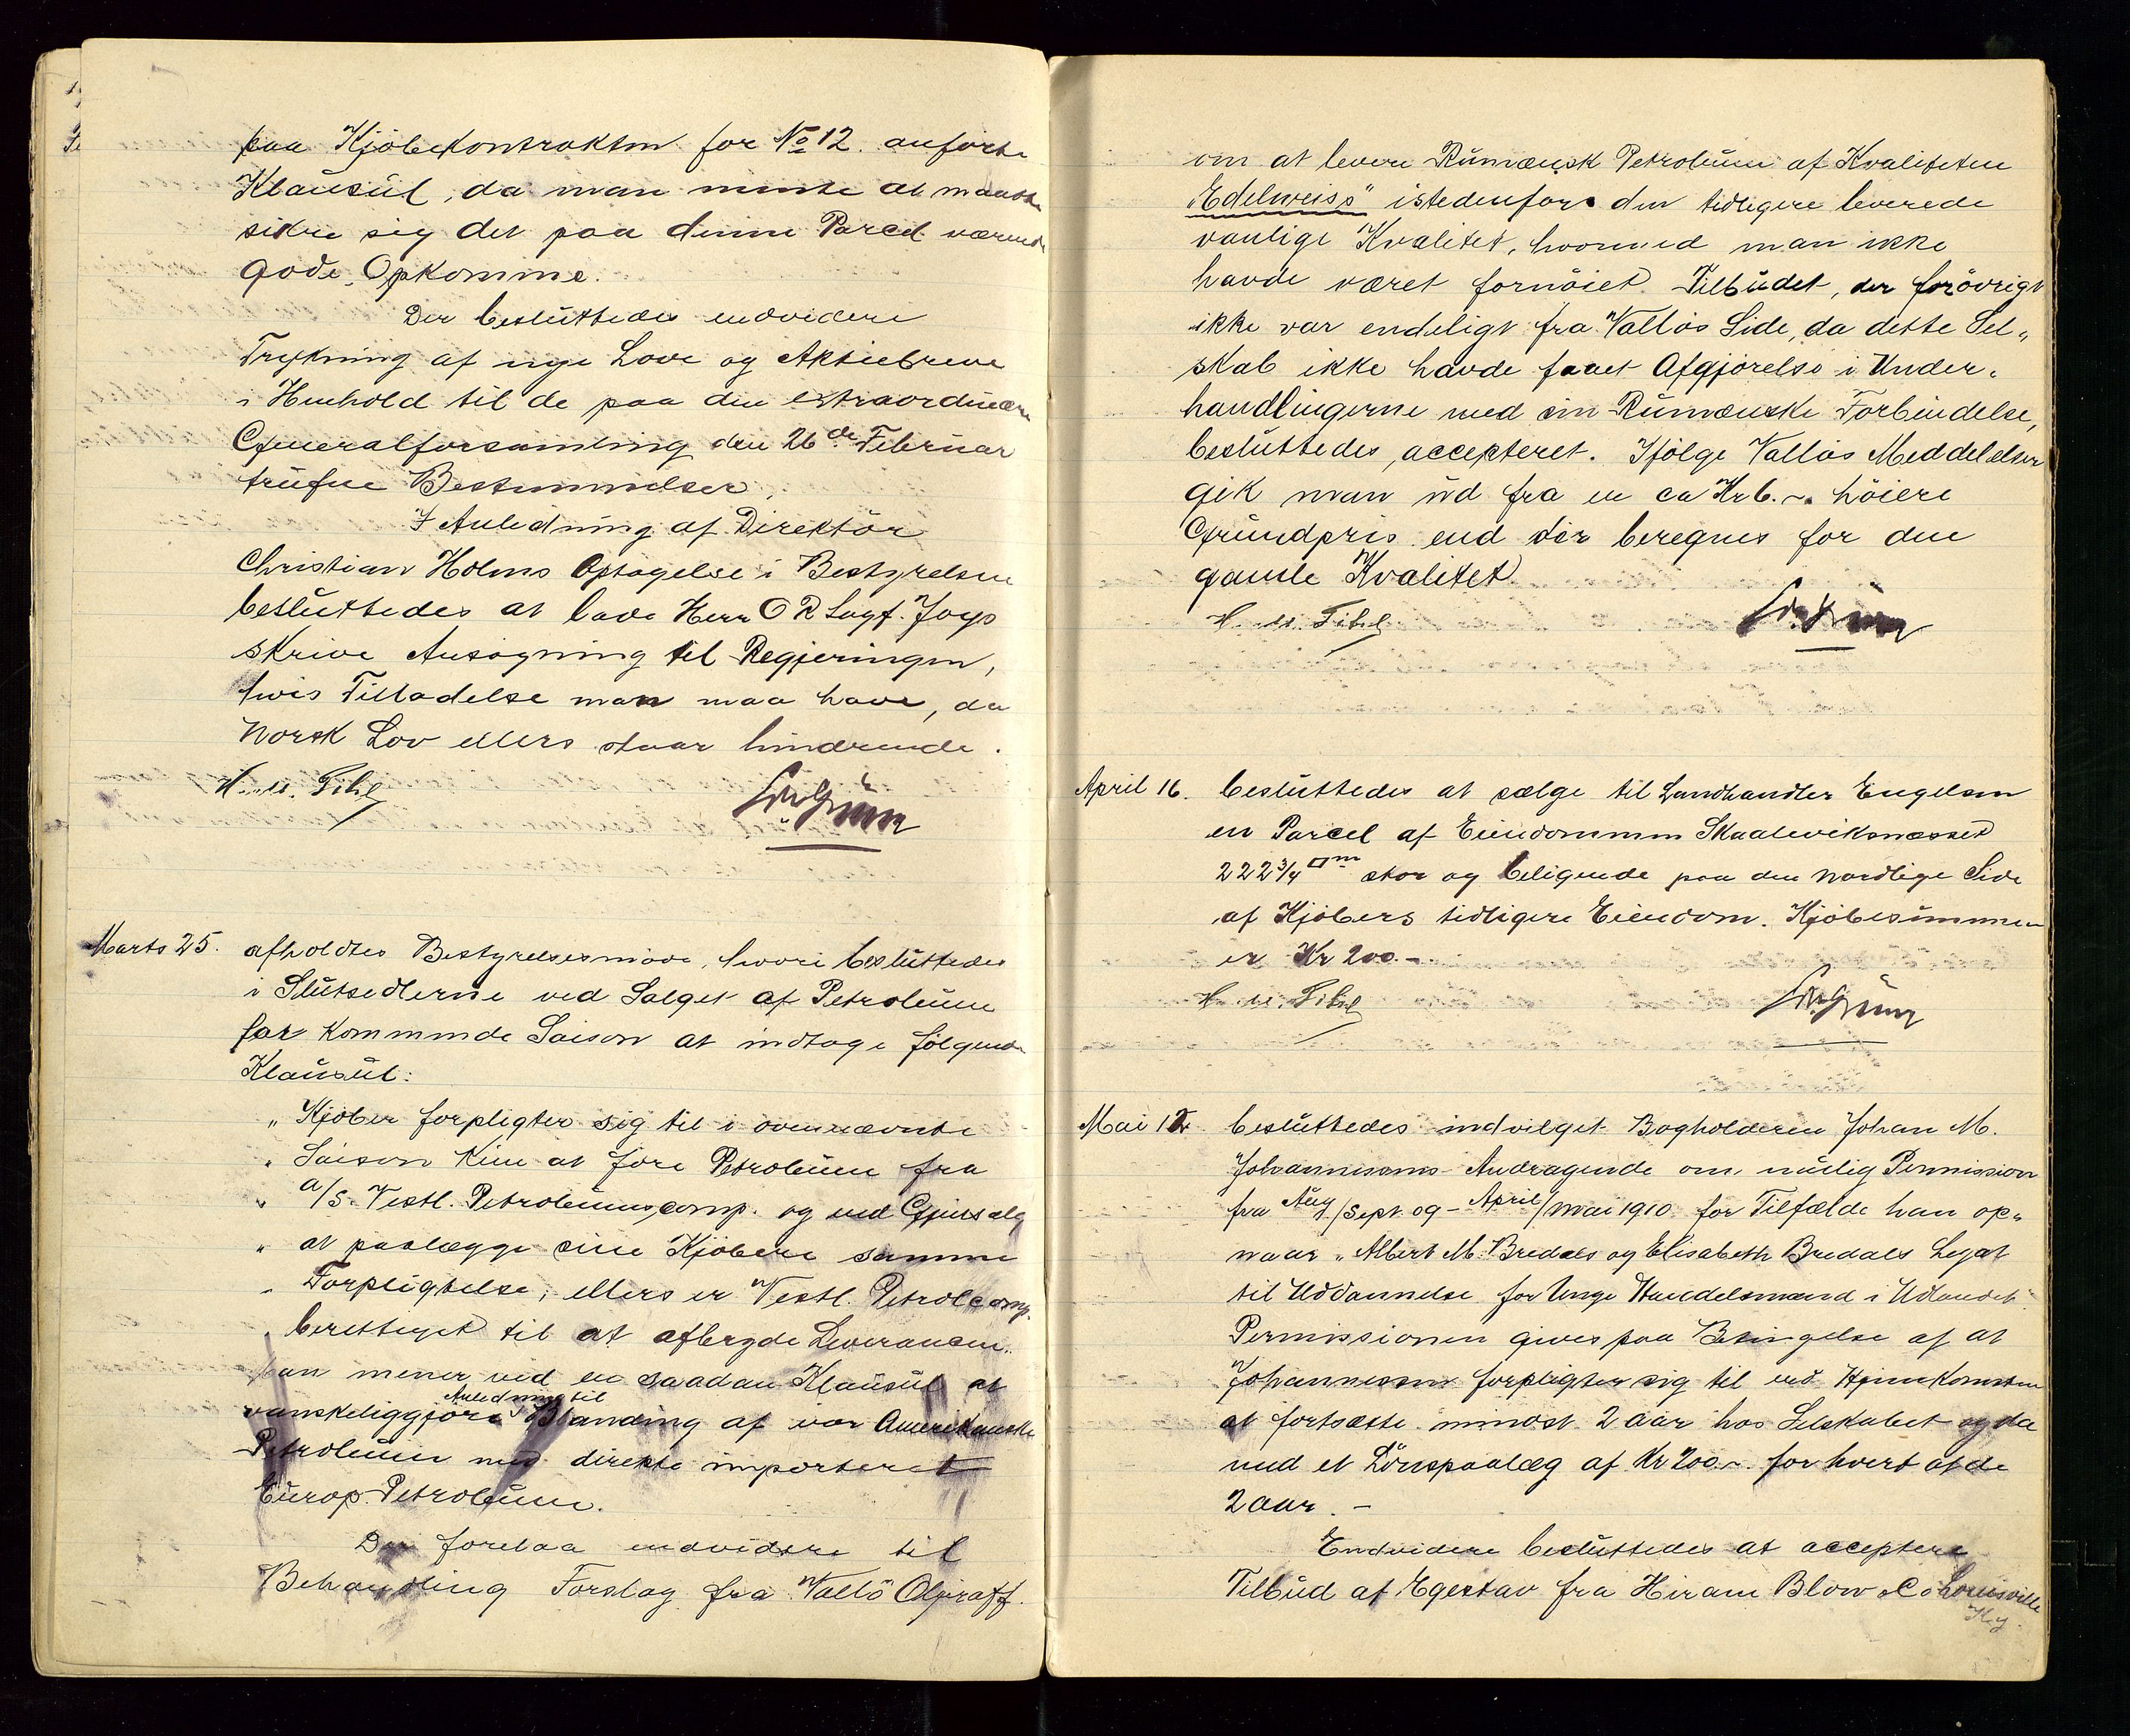 paa Kjöbekontrakten for No 12. anförte
Klausul, da man mente at maatte
sikre sig det paa denne Parcel værende
gode Opkomme.
Der besluttedes endvidere
Trykning af nye Love og Aktiebreve
i Henhold til de paa den extraordinære
Generalforsamling den 26de Februar
trufne Bestemmelser.
I Anledning af Direktör
Christian Holms Optagelse i Bestyrelsen
besluttedes at lade Herr O R Sagf. Joys
skrive Ansögning til Regjeringen,
hvis Tilladelse man maa have, da
Norsk Lov ellers staar hindrende.
Marts 25. afholdtes Bestyrelsesmöde, hvori besluttedes
i Slutsedlerne ved Salget af Petroleum
for kommende Saison at indtage fölgende
Klausul:
„ Kjöber forpligter sig til i ovennævnte
„ Saison kun at före Petroleum fra
„ A/S. Vestl. Petroleumscomp. og ved Gjensalg
„ at paalægge sine Kjöbere samme
„ Forpligtelse, ellers er Vestl. Petrolcomp.
„ berettiget til at afbryde Leverancen.
Man mener ved en saadan Klausul at
vanskeliggjöre Anledning til Blanding af vor Amerikanske
Petroleum med direkte importeret
Europ. Petroleum.
Der forelaa endvidere til
Behandling Forslag fra Vallö Oljeraff.
om at levere Rumænsk Petroleum af Kvaliteten
„Edelweiss" istedenfor den tidligere leverede
vanlige Kvalitet, hvormed man ikke
havde været fornöiet. Tilbudet, der forövrigt
ikke var endeligt fra Vallös Side, da dette Sel„
skab ikke havde faaet Afgjörelse i Under„
handlingerne med sin Rumænske Forbindelse,
besluttedes accepteret. Ifölge Vallös Meddelelser
gik man ud fra en ca Kr 6.- höiere
Grundpris end der beregnes for den
gamle Kvalitet
April 16. besluttedes at sælge til Landhandler Engelsen
en Parcel af Eiendommen Skaaleviksnæsset
222 3/4 □m stor og beligende paa den nordlige Side
af Kjöbers tidligere Eiendom. Kjöbesummen
er Kr 200.-
Mai 12. besluttedes indvilget Bogholderen Johan M.
Johannesens Andragende om mulig Permission
fra Aug/Sept. 09 - April/Mai 1910 for Tilfælde han op„
naar „Albert M. Bredals og Elisabeth Bredals Legat
til Uddannelse for Unge Handelsmænd i Udlandet".
Permissionen gives paa Betingelse af at
Johannesen forpligter sig til ved Hjemkomsten
at fortsætte mindst 2 aar hos Selskabet og da
med et Lönspaalæg af Kr 200.- for hvert af de
2 aar. -
Endvidere besluttedes at acceptere
Tilbud af Egestav fra Hiram Blow & Co Louisville
Ky.